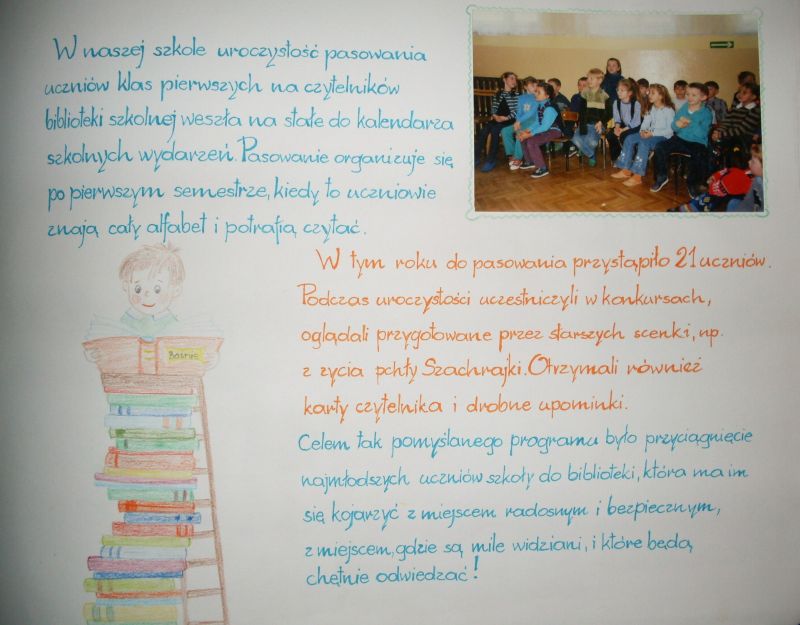 W naszej szkole uroczystość pasowania
uczniów klas pierwszych na czytelników
biblioteki szkolnej weszła na stałe do kalendarza
szkolnych wydarzeń. Pasowanie organizuje się
po pierwszym semestrze, kiedy to uczniowie
znają cały alfabet i potrafią czytać.
W tym roku do pasowania przystąpiło 21 uczniów.
Podczas uroczystości uczestniczyli w konkursach,
oglądali przygotowane przez starszych scenki, np.
z życia pchły Szachrajki. Otrzymali również
karty czytelnika i drobne upominki.
Celem tak pomyślanego programu było przyciągnięcie
najmłodszych uczniów szkoły do biblioteki, która ma im
się kojarzyć z miejscem radosnym i bezpiecznym,
z miejscem, gdzie są mile widziani, i które będą
chętnie odwiedzać!
Baśnie